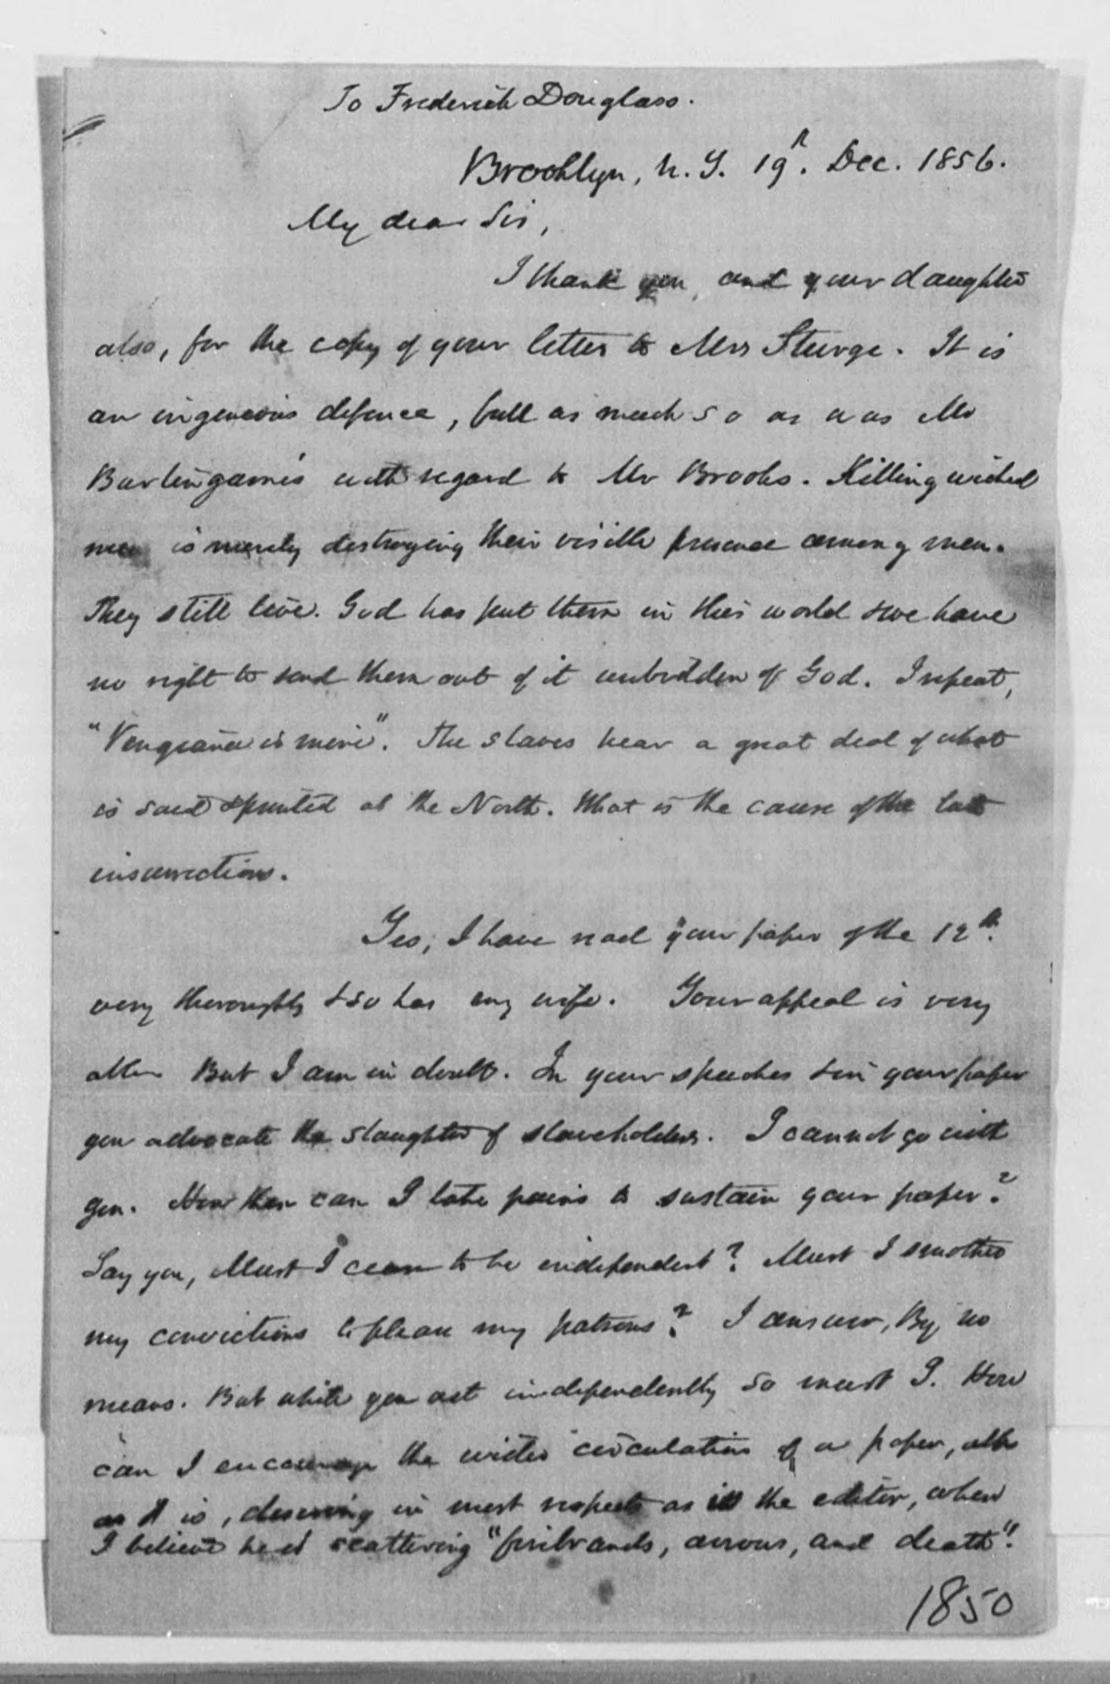 To Frederick Douglass.
Brooklyn, N. Y. 19th. Dec. 1856.
My dear Sir,
I thank you, and your daughter
also, for the copy of your letter to Mrs Sturge. It is
an ingenious defence, full as much so as was Mr
Burlingame's with regard to Mr Brooks. Killing wicked
men is merely destroying their visible presence among men.
They still live. God has put them in this world & we have
no right to send them out of it unbidden of God. I repeat,
"Vengeance is mine". The slaves hear a great deal of what
is said & printed at the North. What is the cause of the late
insurrections.
Yes, I have read your paper of the 12th.
very thoroughly & so has my wife. Your appeal is very
able But I am in doubt. In your speeches & in your paper
you advocate the slaughter of slaveholders. I cannot go with
you. How then can I take pains to sustain your paper?
Say you, Must I cease to be independent? Must I smother
my convictions to please my patrons? I answer, By no
means. But while you act independently so must I. How
can I encourage the wider circulation of a paper, able
as it is, deserving in most respects as is the editor, when
I believe he is scattering "firebrands, arrows, and death"?
1850